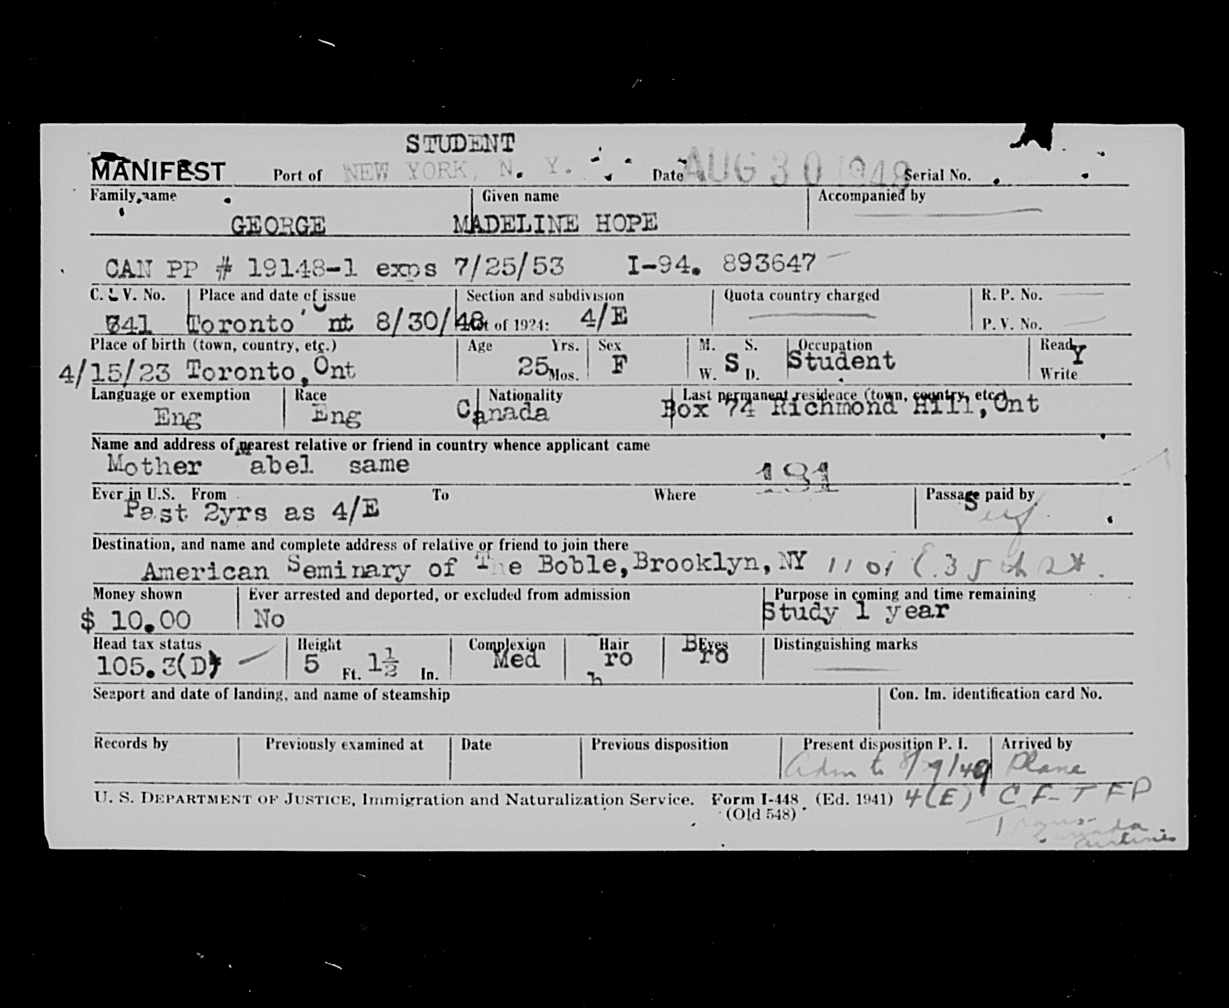 STUDENT
MANIFEST Port of NEW YORK, N. Y. Date AUG 30 1948 Serial No.
Family name Given name Accompanied by
GEORGE MADELINE HOPE
CAN PP # 19148-1 exps 7/25/53 I-94. 893647
C. I. V. No. Place and date of issue Section and subdivision Quota country charged R. P. No.
341 Toronto Ont 8/30/48 Act of 1924: 4/E P. V. No.
Place of birth (town, country, etc.) Age Yrs. Sex M. S. Occupation Read
4/15/23 Toronto, Ont 25 Mos. F W. S D. Student Y Write
Language or exemption Race Nationality Last permanent residence (town, country, etc.)
Eng Eng Canada Box 74 Richmond Hill, Ont
Name and address of nearest relative or friend in country whence applicant came
Mother Mabel same 191
Ever in U.S. From To Where Passage paid by
Past 2yrs as 4/E Self.
Destination, and name and complete address of relative or friend to join there
American Seminary of The Boble, Brooklyn, NY 1101 E. 35th St.
Money shown Ever arrested and deported, or excluded from admission Purpose in coming and time remaining
$ 10.00 No Study 1 year
Head tax status Height Complexion Hair Eyes Distinguishing marks
105.3(D) 5 Ft. 1½ In. Med bro Bro
Seaport and date of landing, and name of steamship Con. Im. identification card No.
Records by Previously examined at Date Previous disposition Present disposition P. I. Arrived by
Adm to 8/29/49 Plane
U. S. DEPARTMENT OF JUSTICE, Immigration and Naturalization Service. Form I-448 (Ed. 1941) 4(E) CF-TFP
(Old 548) Trans-
Canada
Airlines